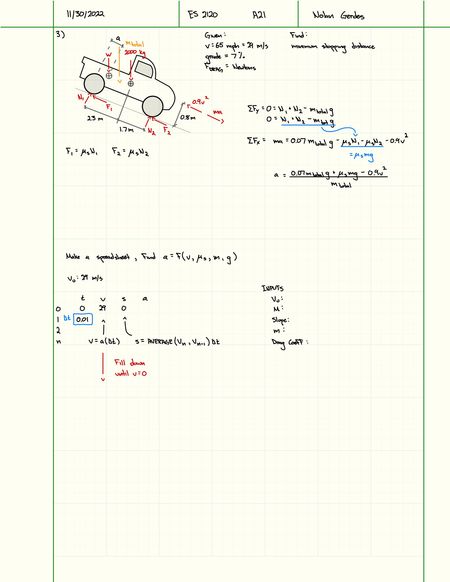 11/30/2022 ES 2120 A21 Nolan Gerdes
3)
Given:
v = 65 mph = 29 m/s
grade = 7%
F_DRAG = Newtons
Find:
maximum stopping distance
a
m total
W
2000 kg
N₁
F₁
N₂
F₂
0.9v²
ma
2.3 m
1.7 m
0.8m
F₁ = μₛN₁ F₂ = μₛN₂
ΣFy = 0 = N₁ + N₂ - m_total g
0 = N₁ + N₂ - m_total g
ΣFx = ma = 0.07 m_total g - μₛN₁ - μₛN₂ - 0.9v²
= μₛmg
a = (0.07 m_total g + μₛmg - 0.9v²) / m_total
Make a spreadsheet, Find a = F(v, μₛ, m, g)
v₀: 29 m/s
t v s a
0 0 29 0
1 Dt 0.01
2
n v = a(Dt) s = AVERAGE(Vn, Vn-1) Dt
Fill down
until v=0
v
INPUTS
V₀:
M:
Slope:
m:
Drag Coeff: